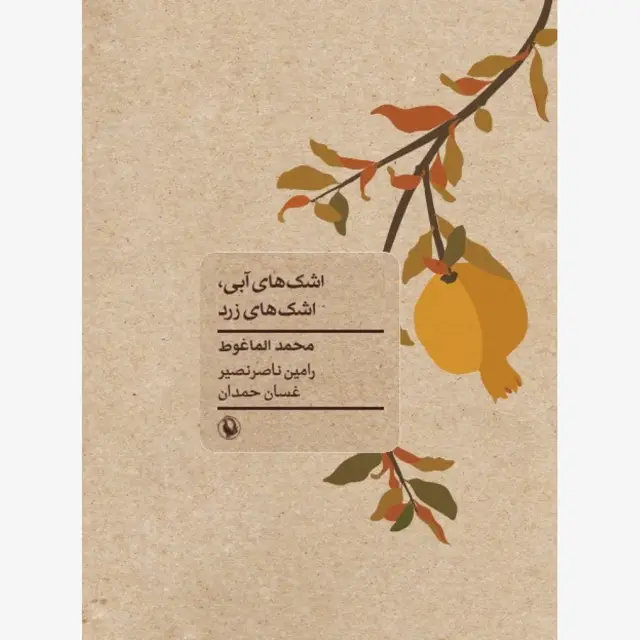 اشک‌های آبی،
اشک‌های زرد
محمد الماغوط
رامین ناصرنصیر
غسان حمدان